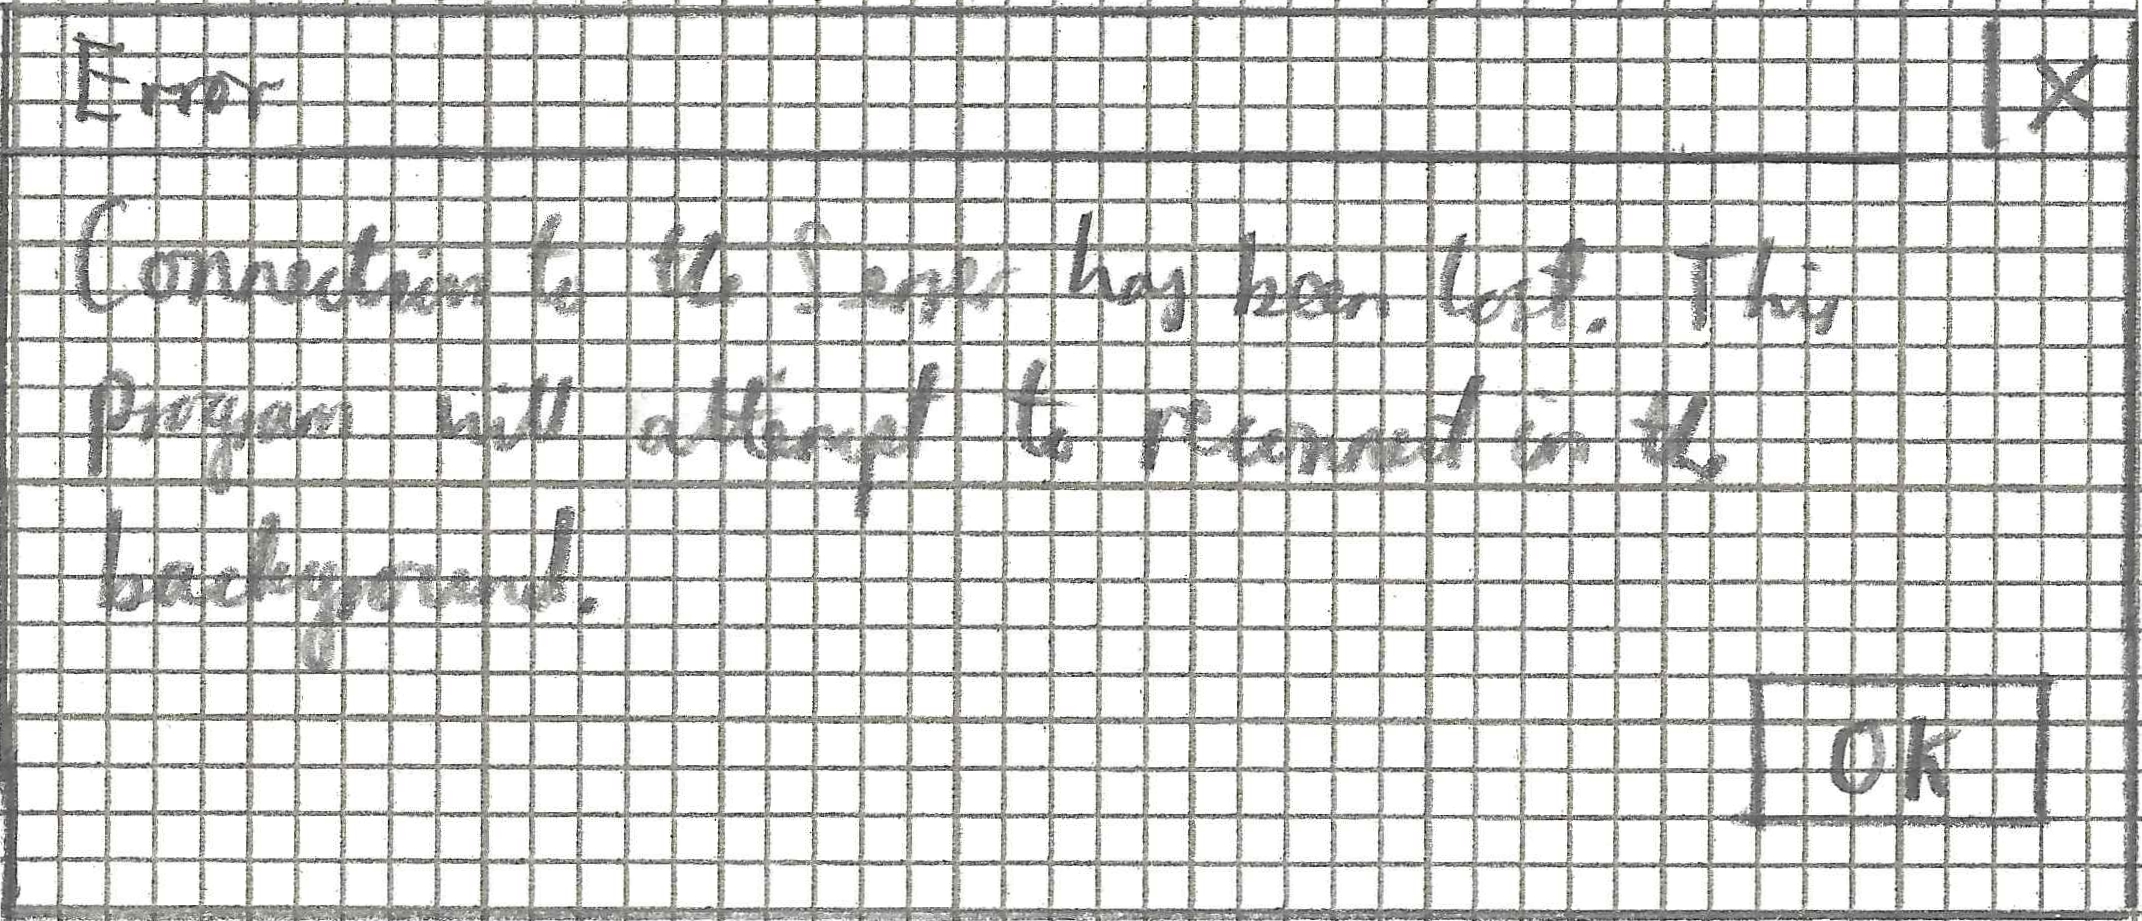 Error X
Connection to the Server has been lost. This
program will attempt to reconnect in the
background.
OK